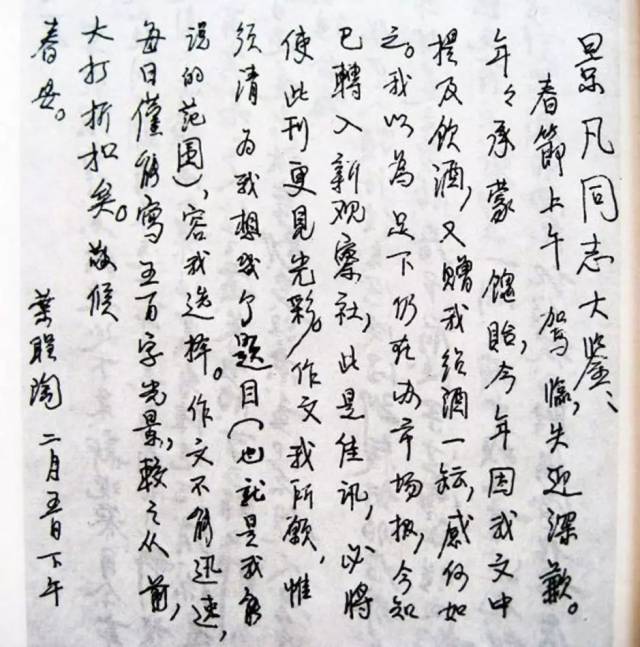 景凡同志大鉴、
春節上午 駕臨，失迎深歉。
年々承蒙 餽貽，今年因我文中
提及飲酒，又贈我紹酒一罈，感何如
之。我以為足下仍在办市场报，今知
已轉入新观察社，此是佳讯，必將
使此刊更見光彩。作文我所願，惟
须请为我想幾个题目（也就是我能
说的范围），容我选擇。作文不能迅速，
每日僅能寫五百字光景，較之从前，
大打折扣矣。敬候
春安。
葉聖陶 二月五日下午